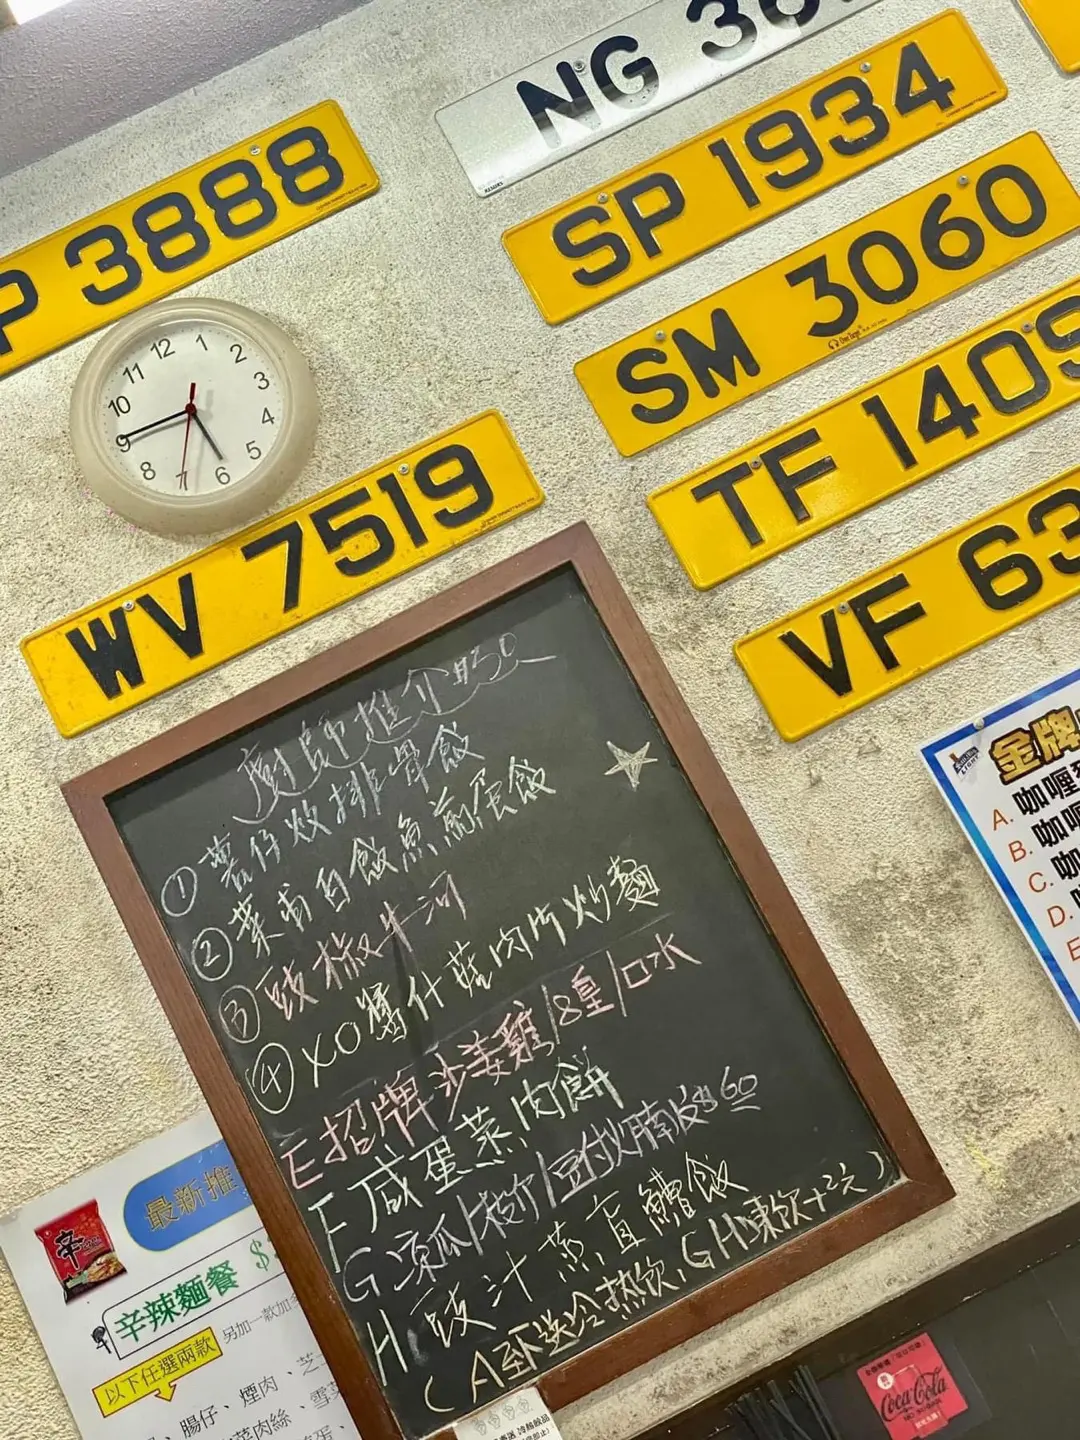 NG 36
SP 1934
P 3888
SM 3060
12 1 2 3 4 5 6 7 8 9 10 11
TF 1409
WV 7519
VF 63
廚師推介 $50
① 薯仔炆排骨飯
② 菜甫白飯魚煎蛋飯
③ 豉椒牛河
④ XO醬什菇肉片炒麵
E 招牌沙姜雞/8皇/口水
F 咸蛋蒸肉餅
G 涼瓜/枝竹/豆付火腩飯$60
H 豉汁蒸盲鰽飯
(A至F送冷热饮,GH凍饮+2元)
金牌
A. 咖喱
B. 咖
C. 咖
D.
E
最新推
辛
辛辣麵餐 $
以下任選兩款
另加一款加
腸仔、煙肉、芝
菜肉絲、雪菜
Coca-Cola